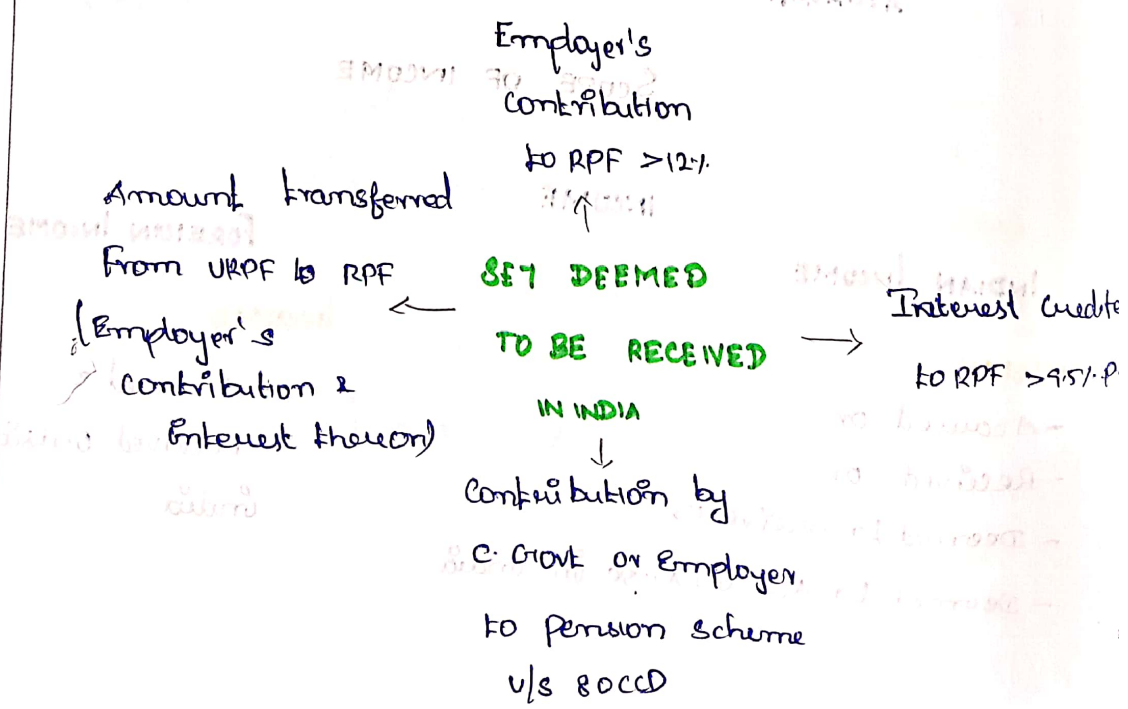 Employer's
contribution
to RPF >12%
Amount transferred
From URPF to RPF
(Employer's
contribution &
interest thereon)
SE7 DEEMED
TO BE RECEIVED
IN INDIA
Interest credite
to RPF >9.5% P.
Contribution by
C. Govt or Employer.
to pension scheme
u/s 80CCD